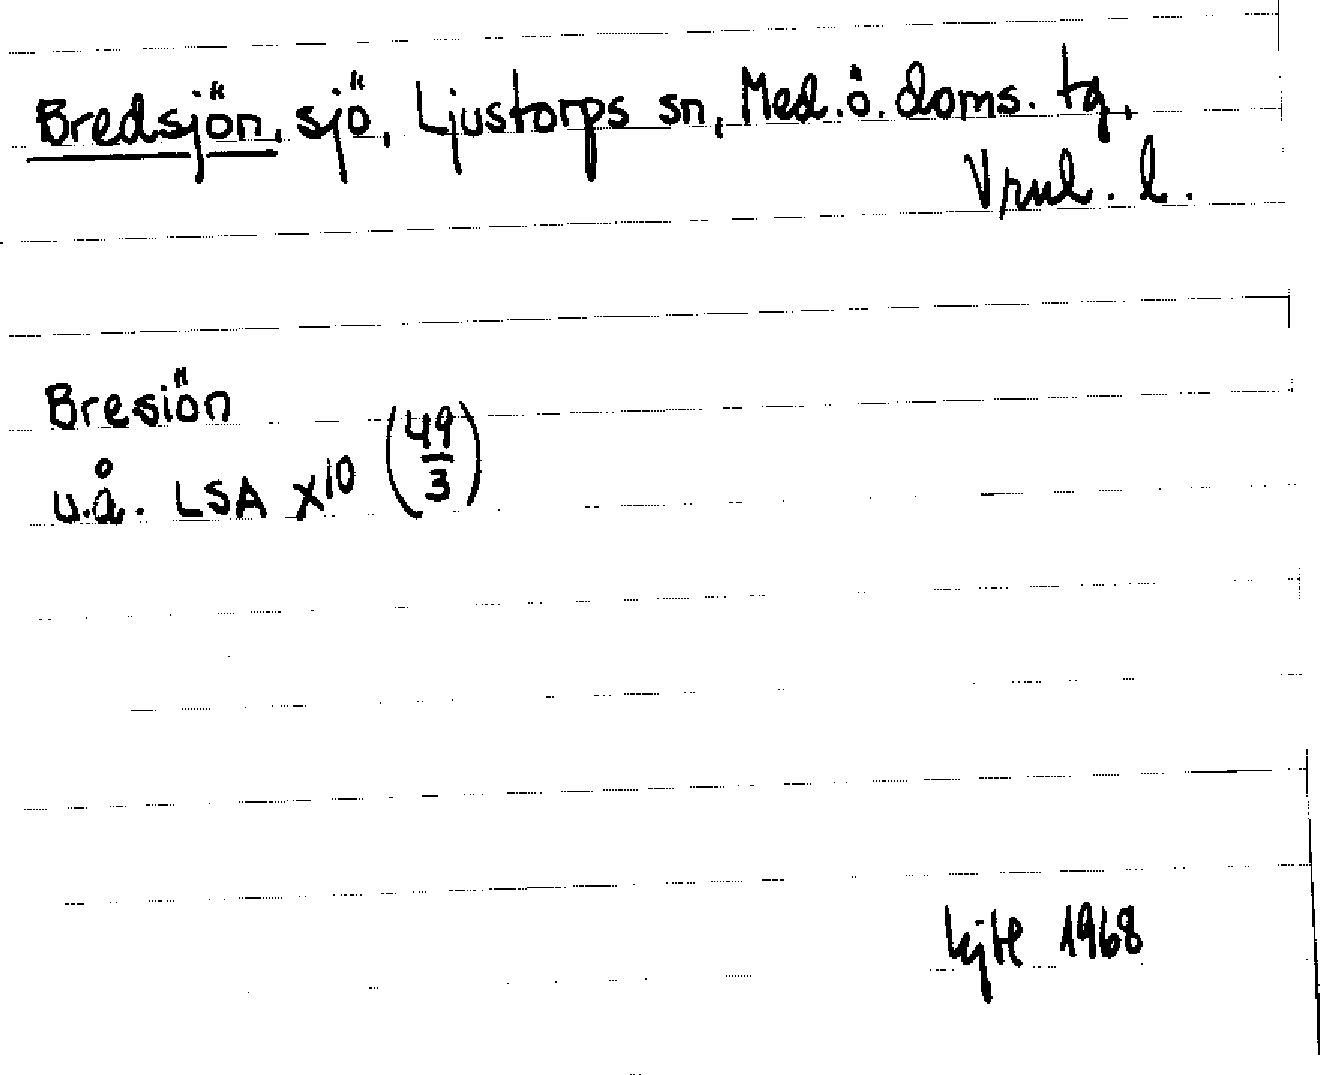 Bredsjön, sjö, Ljustorps sn, Med. ö. doms. tg,
Vrnl. l.
Bresiön
u.å. LSA X¹⁰ (49/3)
1968